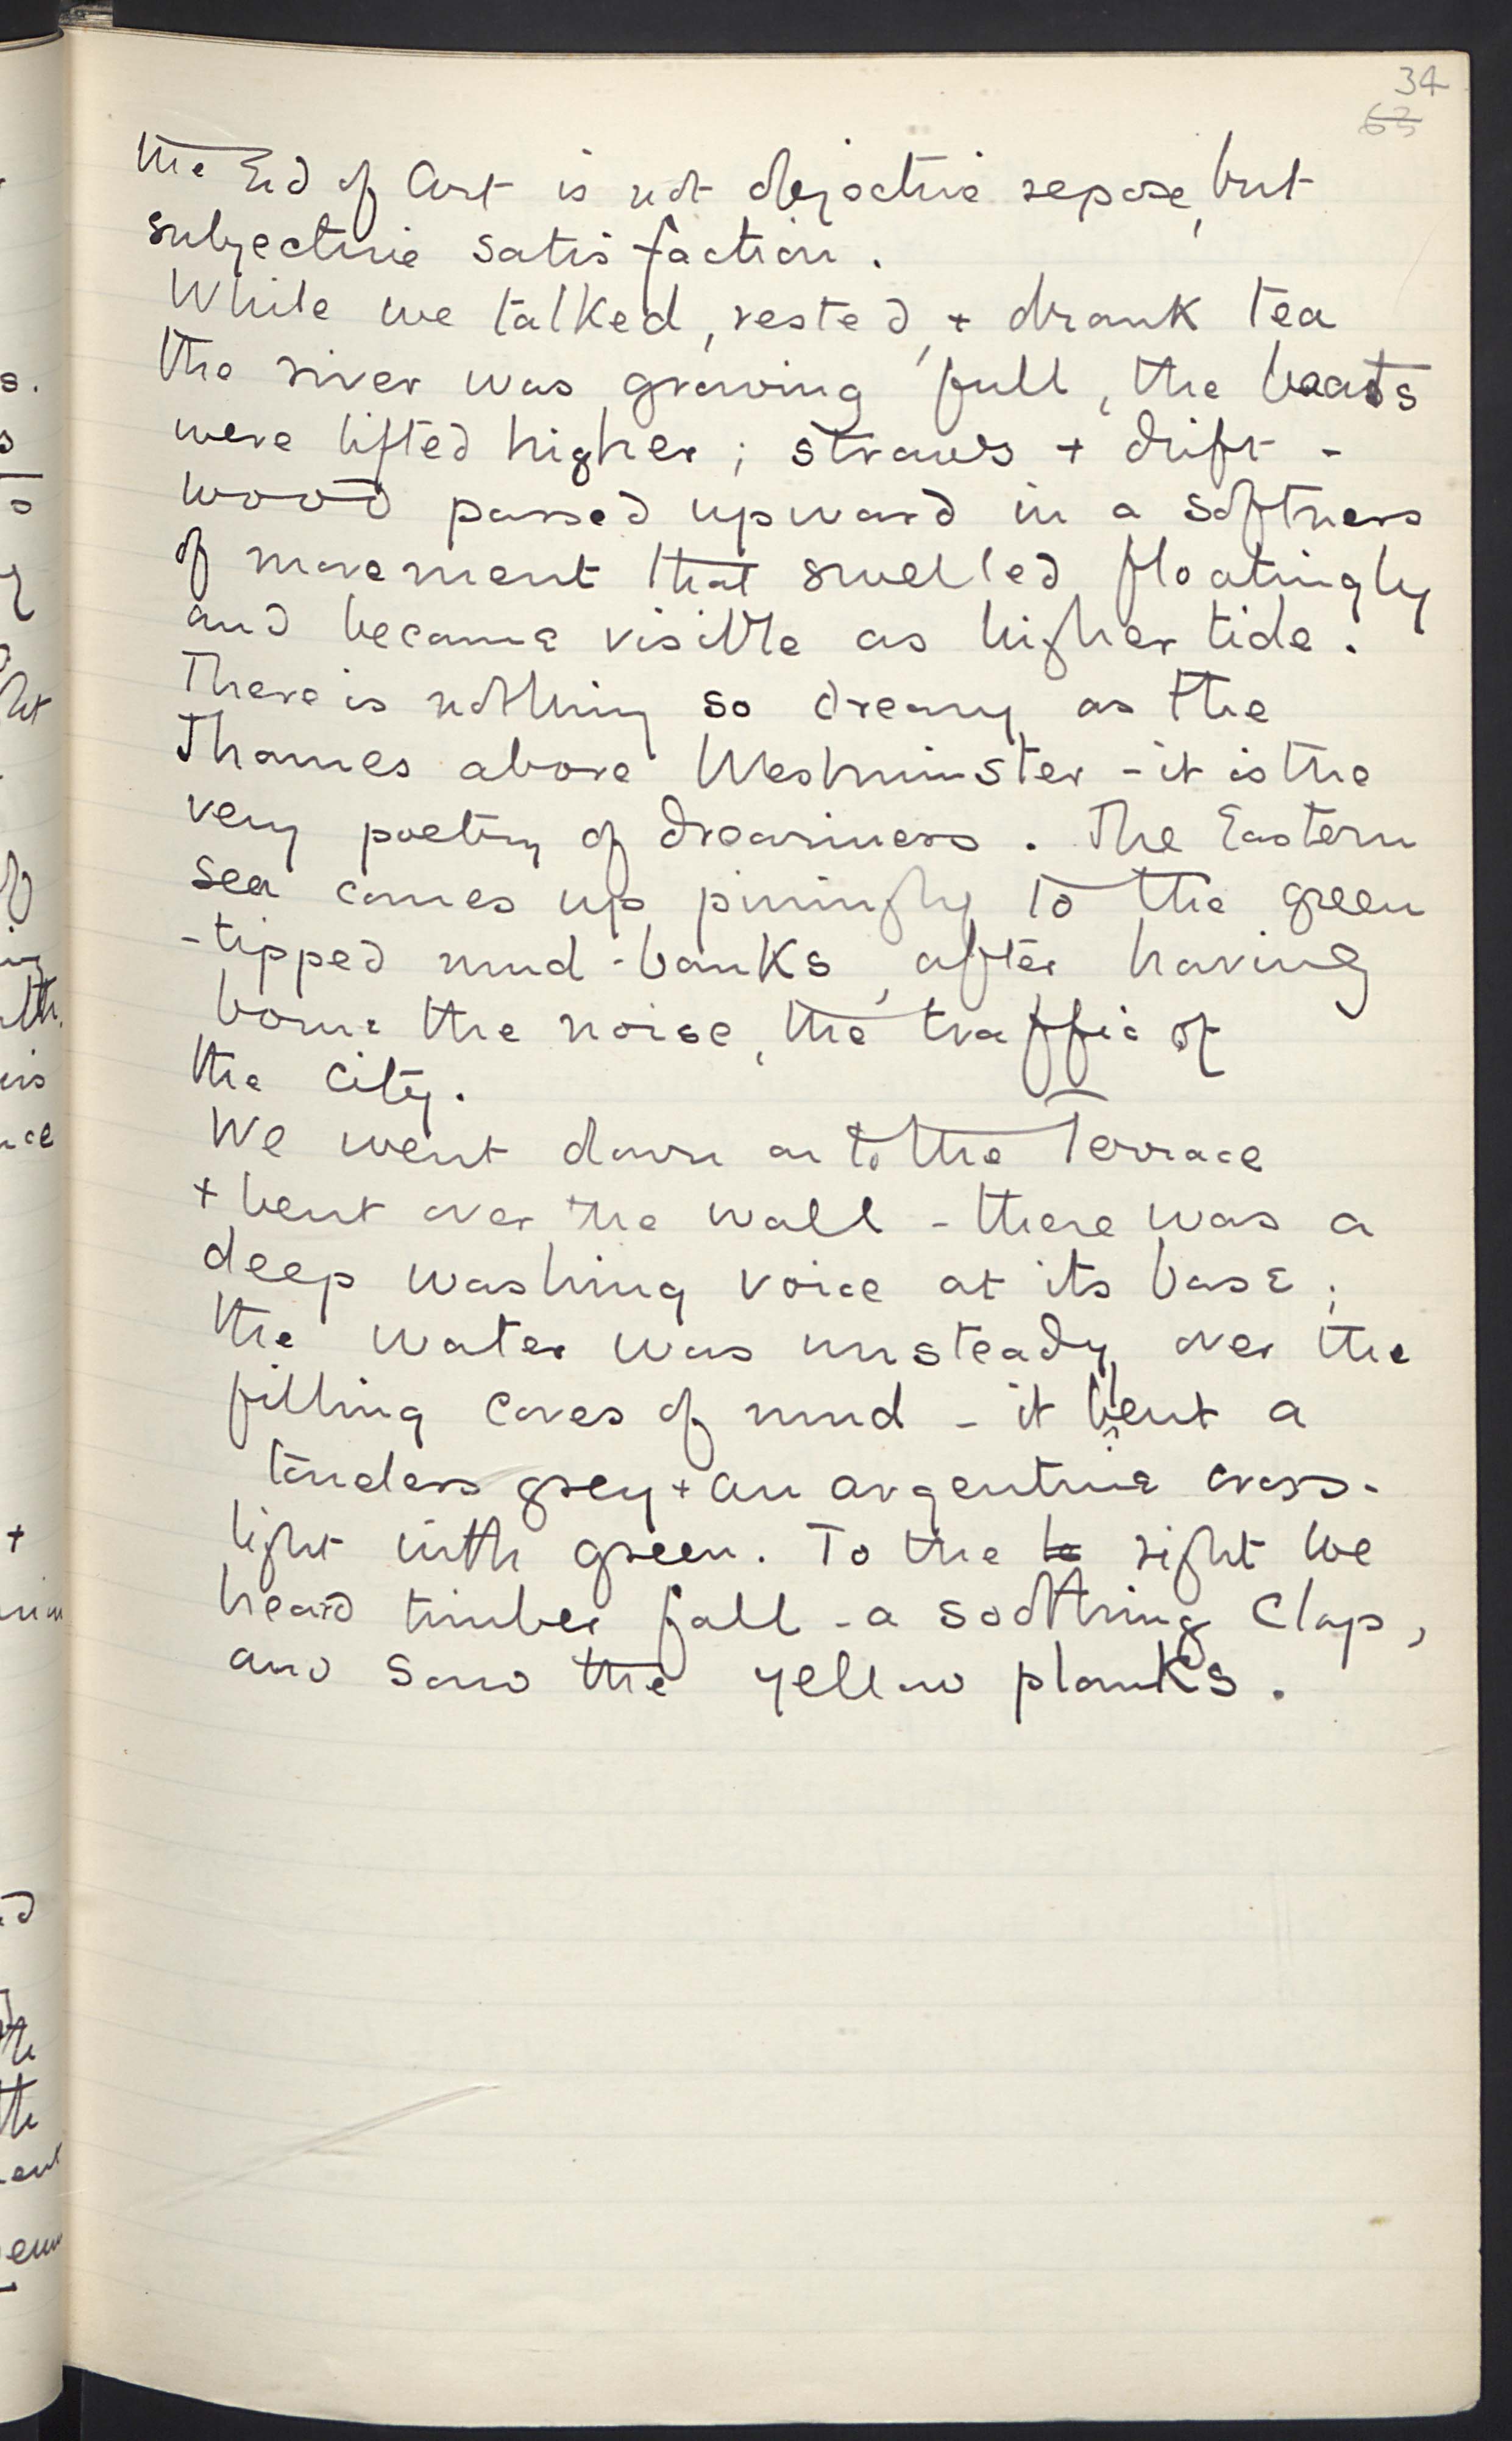 34
63
the End of Art is not objective repose, but
subjective satisfaction.
While we talked, rested, + drank tea
the river was growing full, the boats
were lifted higher; straws + drift-
wood passed upward in a softness
of movement that swelled floatingly
and became visible as higher tide.
There is nothing so dreamy as the
Thames above Westminster - it is the
very poetry of dreaminess. The Eastern
sea comes up piningly to the green
-tipped mud-banks, after having
borne the noise, the traffic of
the city.
We went down on to the Terrace
+ bent over the wall - there was a
deep washing voice at its base;
the water was unsteady over the
filling caves of mud - it blent a
tenders grey + an argentine cross-
light with green. To the le right we
heard timber fall - a soothing clap,
and saw the yellow planks.